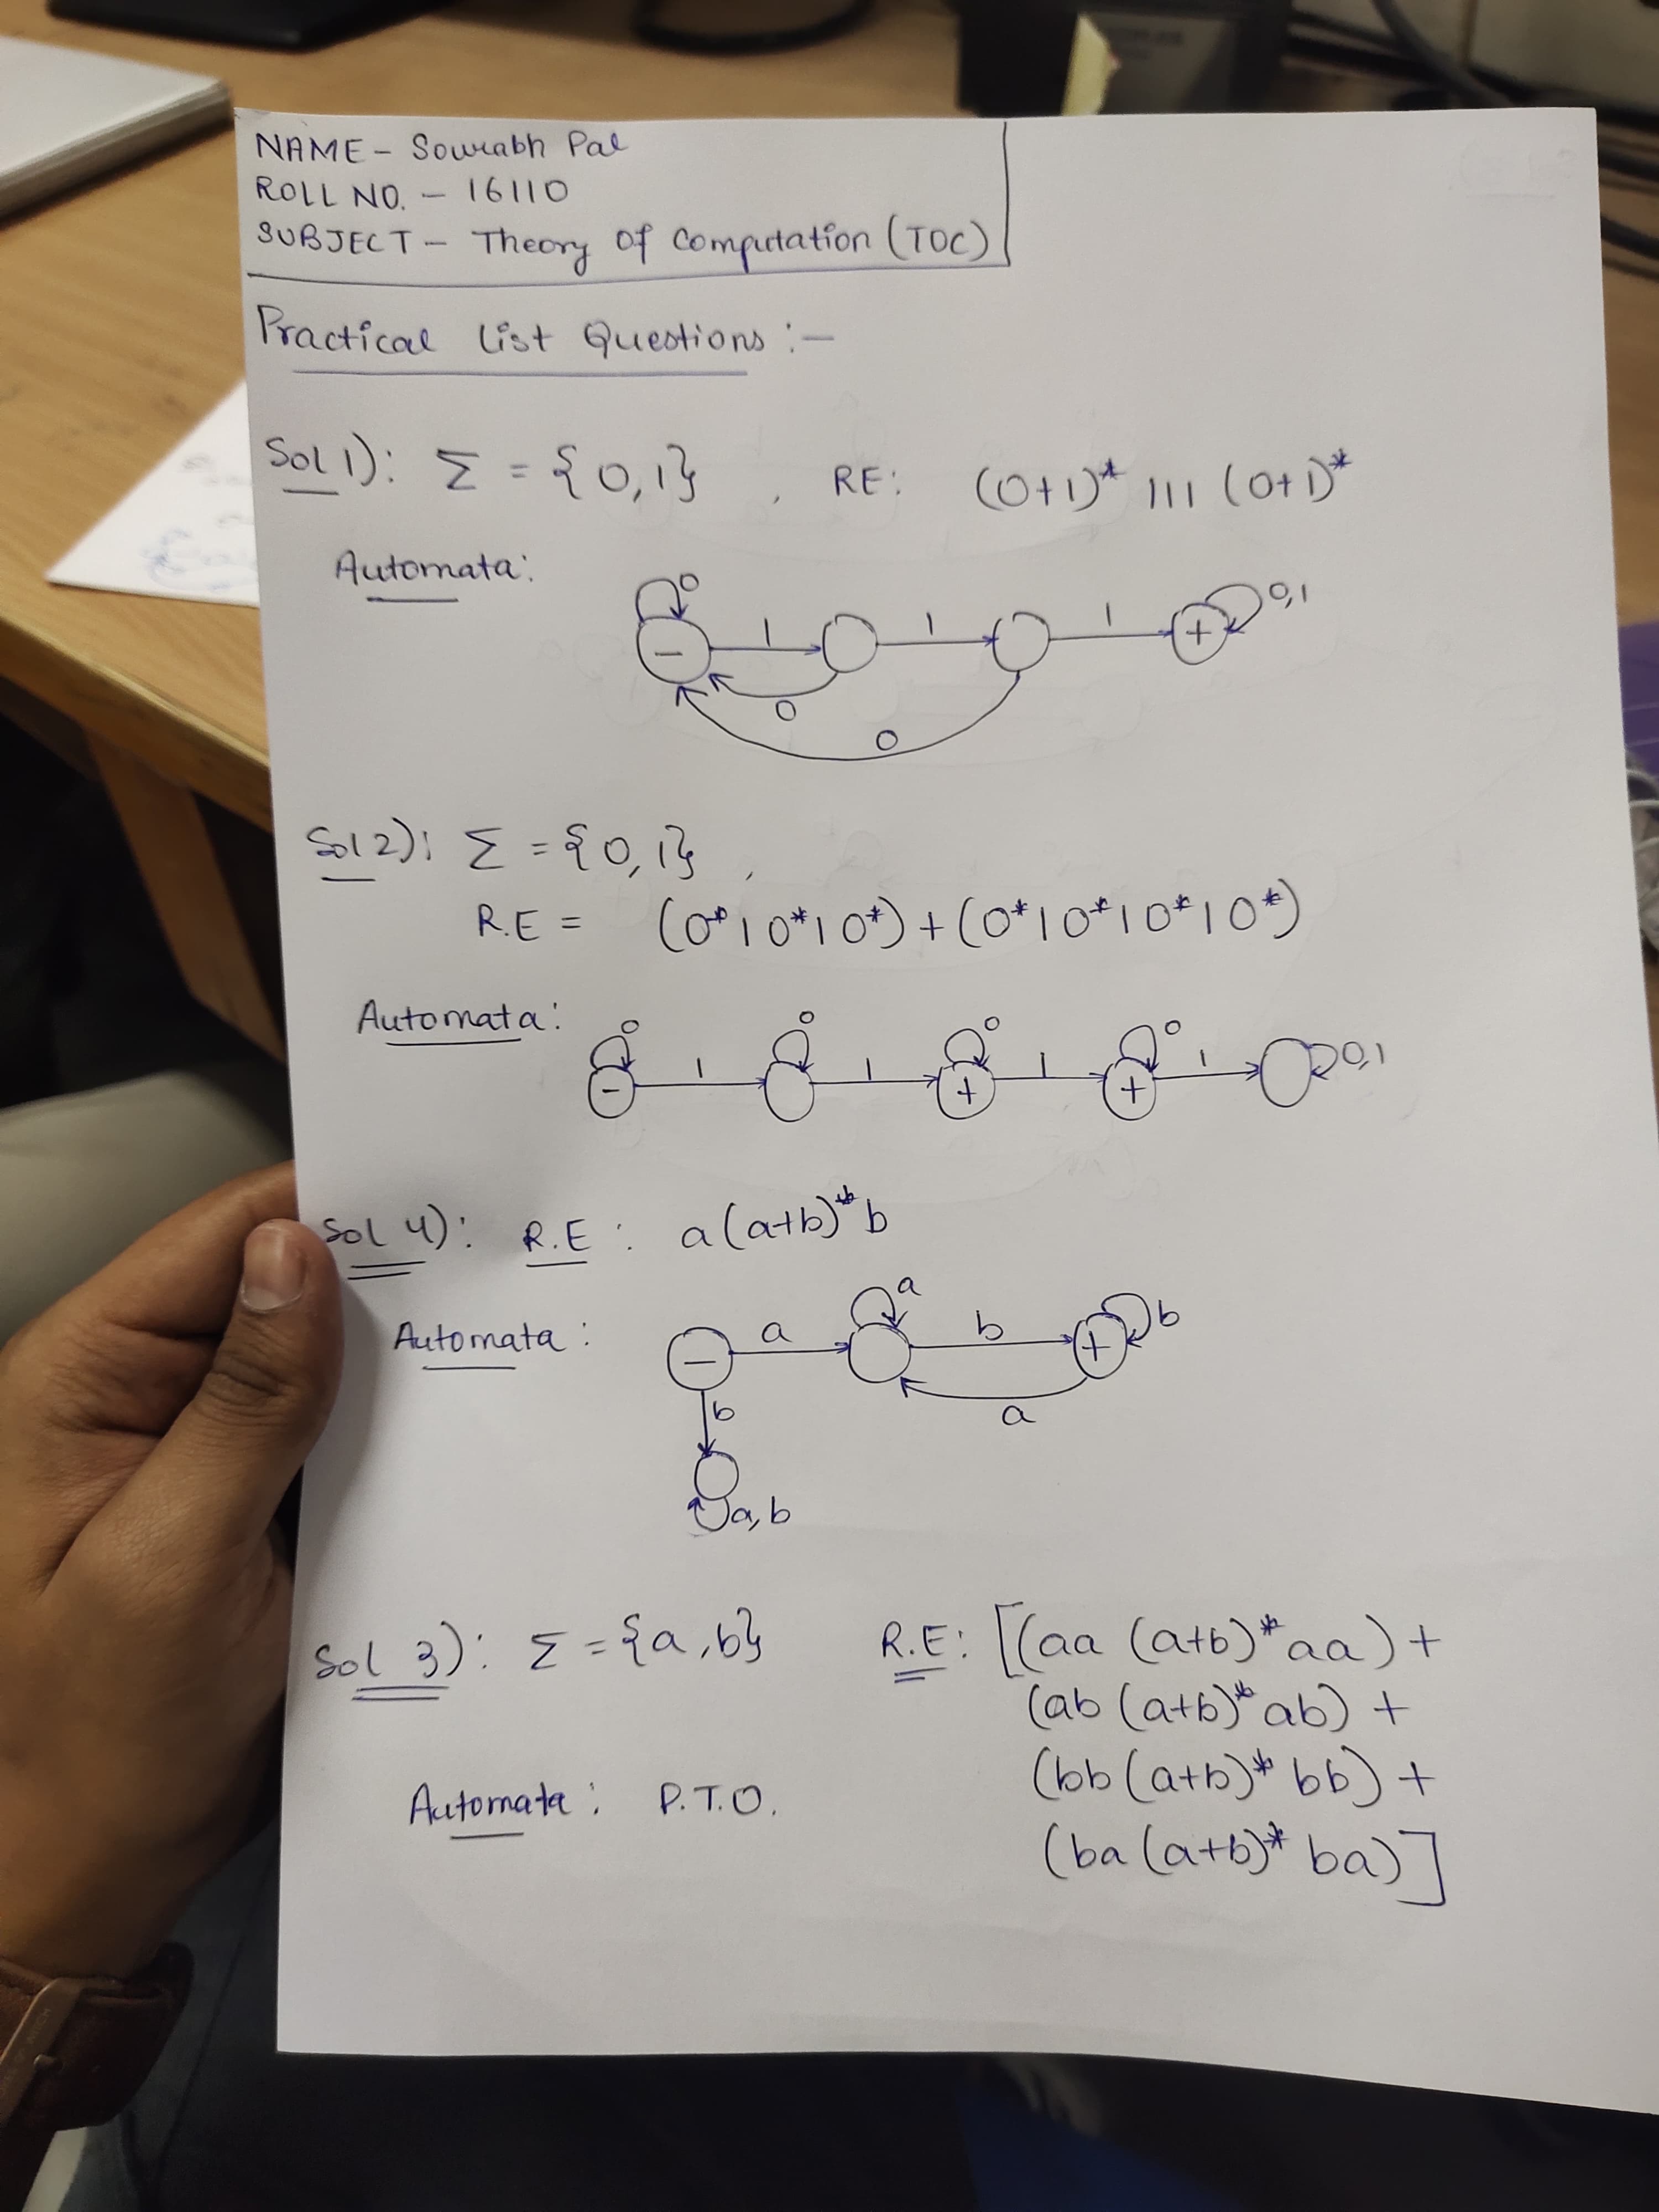 NAME - Sourabh Pal
ROLL NO. - 16110
SUBJECT - Theory Of Computation (TOC)
Practical List Questions :-
Sol 1): Σ = {0,1} , RE: (0+1)* 111 (0+1)*
Automata:
0 1 1 1 0,1
- +
0
0
Sol 2): Σ = {0,1} ,
R.E = (0*10*10*) + (0*10*10*10*)
Automata:
0 0 0 0
- 1 1 + 1 + 1 0,1
Sol 4): R.E : a(a+b)*b
Automata :
a
- a b + b
a
b
a,b
Sol 3): Σ = {a,b} R.E: [(aa (a+b)* aa) +
(ab (a+b)* ab) +
(bb (a+b)* bb) +
(ba (a+b)* ba)]
Automata : P.T.O.